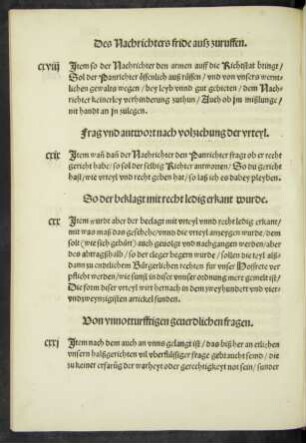 Des Nachrichters fride aufz zuruffen.
cxviij Item so der Nachrichter den armen auff die Richtstat bringt/
Sol der Panrichter öffenlich auß rüffen/ vnd von vnsers wernt-
lichen gewalts wegen/ bey leyb vnnd gut gebieten/ dem Nach-
richter keinerley verhinderung zuthun/ Auch ob jm mißlunge/
nit handt an jn zulegen.
Frag vnd antwort nach volziehung der vrteyl.
cxix Item wañ dañ der Nachrichter den Panrichter fragt ob er recht
gericht habe/ so sol der selbig Richter antworten/ So du gericht
hast/ wie vrteyl vnd recht geben hat/ so laß ich es dabey pleyben.
So der beklagt mit recht ledig erkant wurde.
cxx Item wurdt aber der beclagt mit vrteyl vnnd recht ledig erkant/
mit was maß das geschehe/ vnnd die vrteyl anzeygen wurde/ dem
solt (wie sich gebürt) auch geuolgt vnd nachgangen werden/ aber
des abtragßhalb/ so der cleger begern wurde/ sollen die teyl alß-
dann zu endtlichem Bürgerlichen rechten für vnser Hofrete ver
pflicht werden/ wie sunst in diser vnnser ordnung mere gemelt ist/
Die form diser vrteyl wirt hernach in dem zweyhundert vnd vier-
vndzweynzigisten artickel funden.
Von vnnotturfftigen geuerdlichen fragen.
cxxj Item nach dem auch an vnns gelangt ist/ das biß her an etlichen
vnsern halßgerichten vil vberflüßiger frage gebraucht seind/ die
zu keiner erfarüg der warheyt oder gerechtigkeyt not sein/ sunder